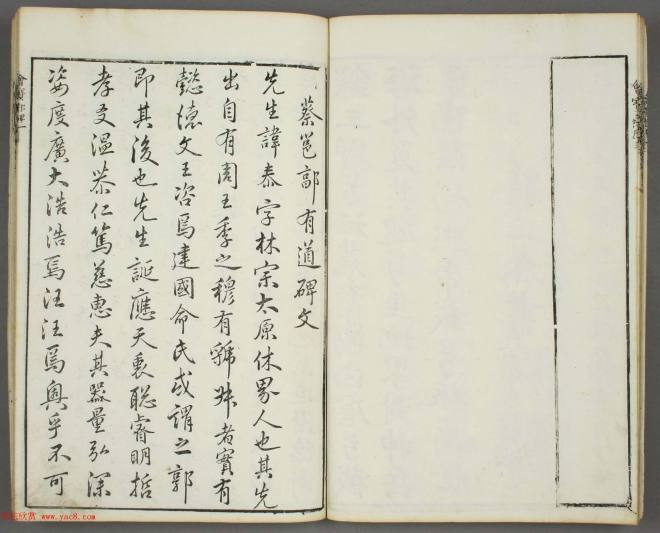 蔡邕郭有道碑文
先生諱泰字林宗太原休界人也其先
出自有周王季之穆有虢姝者實有
懿德文王咨焉建國命氏或謂之郭
即其後也先生誕應天衷聡睿明哲
孝友溫恭仁篤慈惠夫其器量弘深
姿度廣大浩浩焉汪汪焉奧乎不可
www.yac8.com